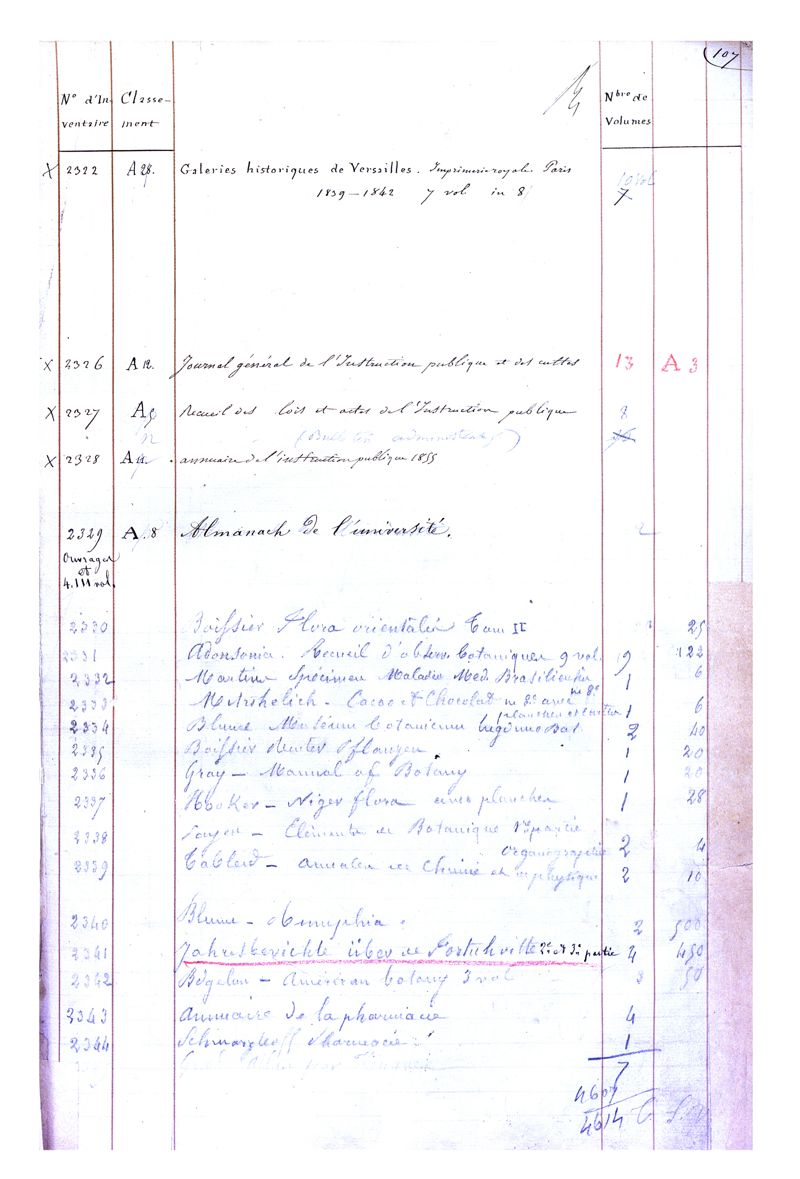 107
N° d'In- Classe- Nbre de
ventaire ment Volumes
X 2322 A 28. Galeries historiques de Versailles. Imprimerie royale Paris 10 vol
1839–1842 7 vol in 8 7
X 2326 A 12. Journal général de l'Instruction publique et des cultes 13 A 3
X 2327 A 9 Recueil des lois et actes de l'Instruction publique 8
12 (Bulletin administratif)
X 2328 A annuaire de l'instruction publique 1855
2329 A. 8 Almanach de l'université. 2
Ouvrages
et
4.111 vol.
2330 Boissier Flora orientalis Tom II 25
2331 Adansonia. Recueil d'observ. botaniques 9 vol. 9 122
2332 Martius Spécimen Med. Brasiliensis 1 6
2333 Mitscherlich - Cacao et Chocolat in 8° avec 1 6
planches
2334 Blume Muséum botanicum Lugduno Bat. 2 40
2335 Boissier Reuter Pflanzen 1 20
2336 Gray – Manual of Botany 1 20
2337 Hooker – Niger flora avec planches 1 28
2338 Payer – Eléments de Botanique 1re partie
Organographie 2 4
2339 annales de Chimie et physique 2 10
2340 Blume – Rumphia. 2 500
2341 Jahresberichte über die Fortschritte 2e et 3e partie 4 450
2342 Bigelow – American botany 3 vol 3 50
2343 Annuaire de la pharmacie 4
2344 Pharmacie 1
7
4607
4614